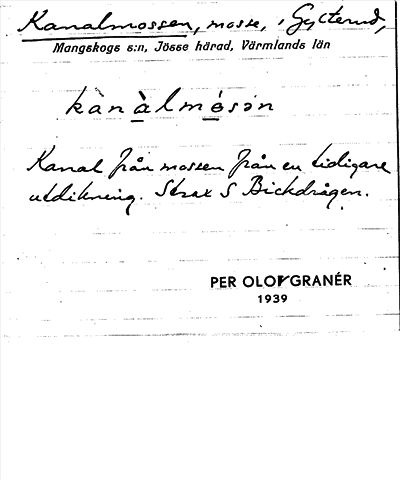 Kanalmossen, mosse, i Gylterud,
Mangskogs s:n, Jösse härad, Värmlands län
kanàlmósən
Kanal från mossen från en tidigare
utdikning. Strax S Bickdrågen.
PER OLOF GRANÉR
1939